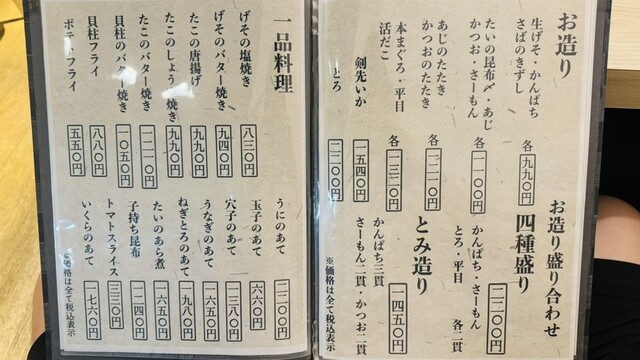 お造り
生げそ・かんぱち
さばのきずし
各 九九〇円
たいの昆布〆・あじ
かつお・さーもん
各 一一〇〇円
あじのたたき
かつおのたたき
各 一二一〇円
本まぐろ・平目
活だこ
各 一三二〇円
剣先いか
一五四〇円
とろ
二二〇〇円
お造り盛り合わせ
四種盛り
かんぱち・さーもん
とろ・平目 各二貫
二二〇〇円
とみ造り
かんぱち三貫
さーもん二貫・かつお二貫
一四五〇円
※価格は全て税込表示
一品料理
げその塩焼き
八三〇円
げそのバター焼き
九四〇円
たこの唐揚げ
九九〇円
たこのしょう 焼き
九九〇円
たこのバター焼き
一二一〇円
貝柱のバター焼き
一〇五〇円
貝柱フライ
八八〇円
ポテトフライ
五五〇円
うにのあて
二二〇〇円
玉子のあて
六六〇円
穴子のあて
一三八〇円
うなぎのあて
一六五〇円
ねぎとろのあて
一九八〇円
たいのあら煮
一六五〇円
子持ち昆布
一二四〇円
トマトスライス
三三〇円
いくらのあて
一七六〇円
※価格は全て税込表示